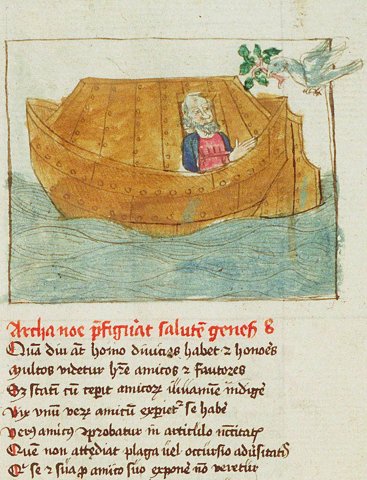 Archa noe p̄figūat salutē genes 8
Quā diu āt homo diuicias habet ⁊ honoēs
Multos videtur hr̄e amicos ⁊ fautores
Sʒ statī cū cepit amicorꝫ iuuamine indigē
Vix vnū verꝫ amicū expiet᷑ se habē
Verꝰ amicꝰ ꝓbatur in articulo nc̄citatꝭ
Quē non attediat plaga uel occursio adūsitatꝭ
Qͥ se ⁊ sua ꝓ amico suo exponē nō veretur